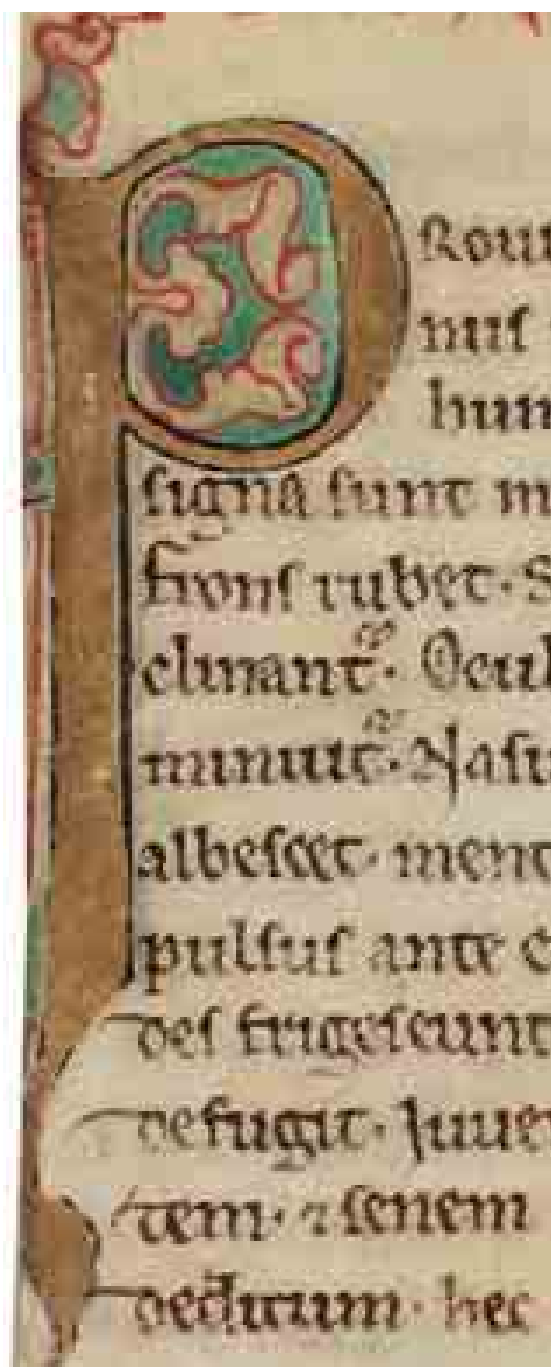 P
Rout
niſ
hum
ſigna ſunt m
fronſ rubet. S
clinant᷑. Ocul
minuit᷑. Naſu
albeſcet. ment
pulſuſ ante c
deſ frigeſcunt
defugit. Juue
tem. ⁊ ſenem
hec